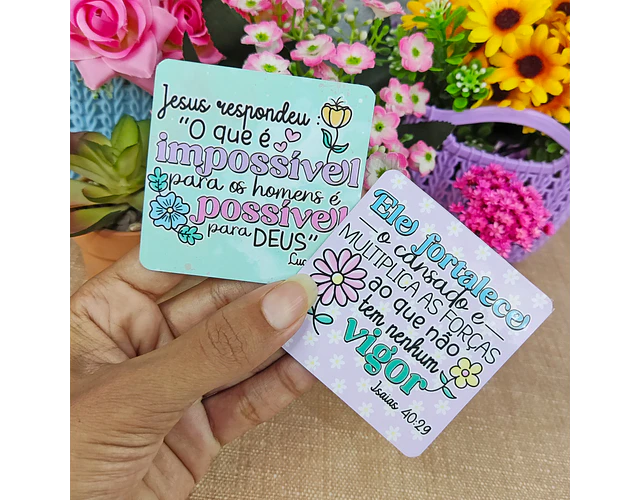 Jesus respondeu:
"O que é
impossível
para os homens é
possível
para DEUS"
Luc
Ele fortalece
o cansado e
MULTIPLICA AS FORÇAS
ao que não
tem nenhum
vigor
Isaías 40:29